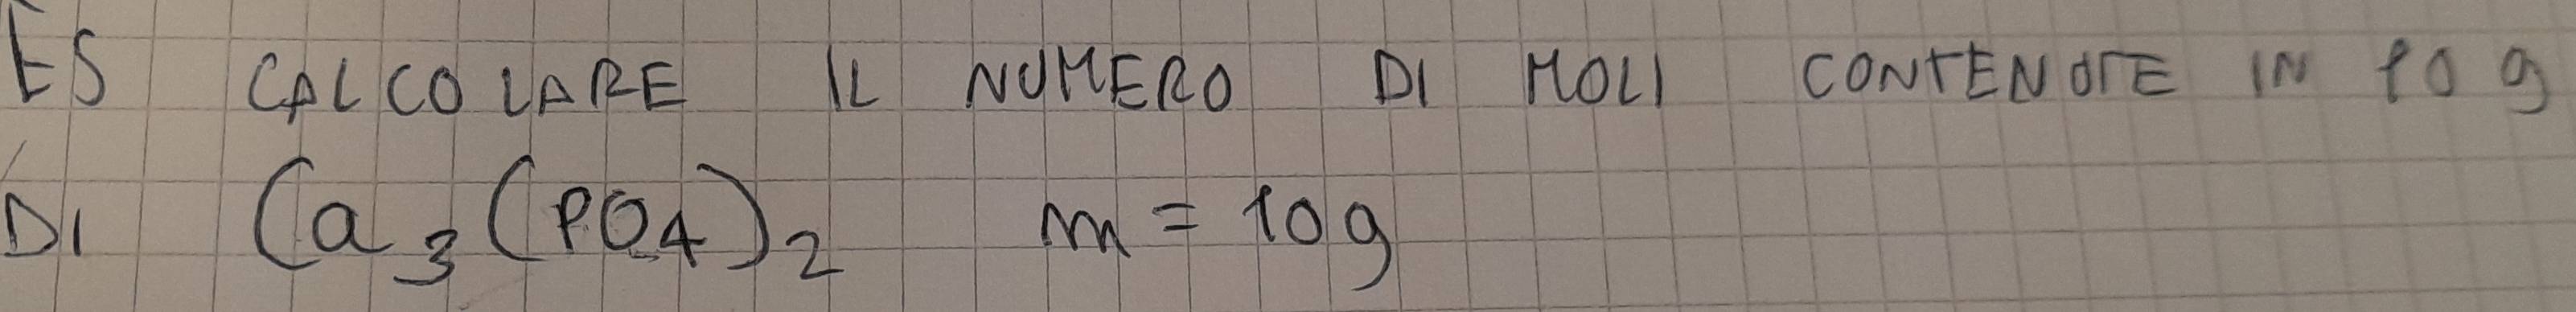 ES CALCOLARE IL NUMERO DI MOLI CONTENUTE IN 10 g
DI Ca3(PO4)2 m = 10g